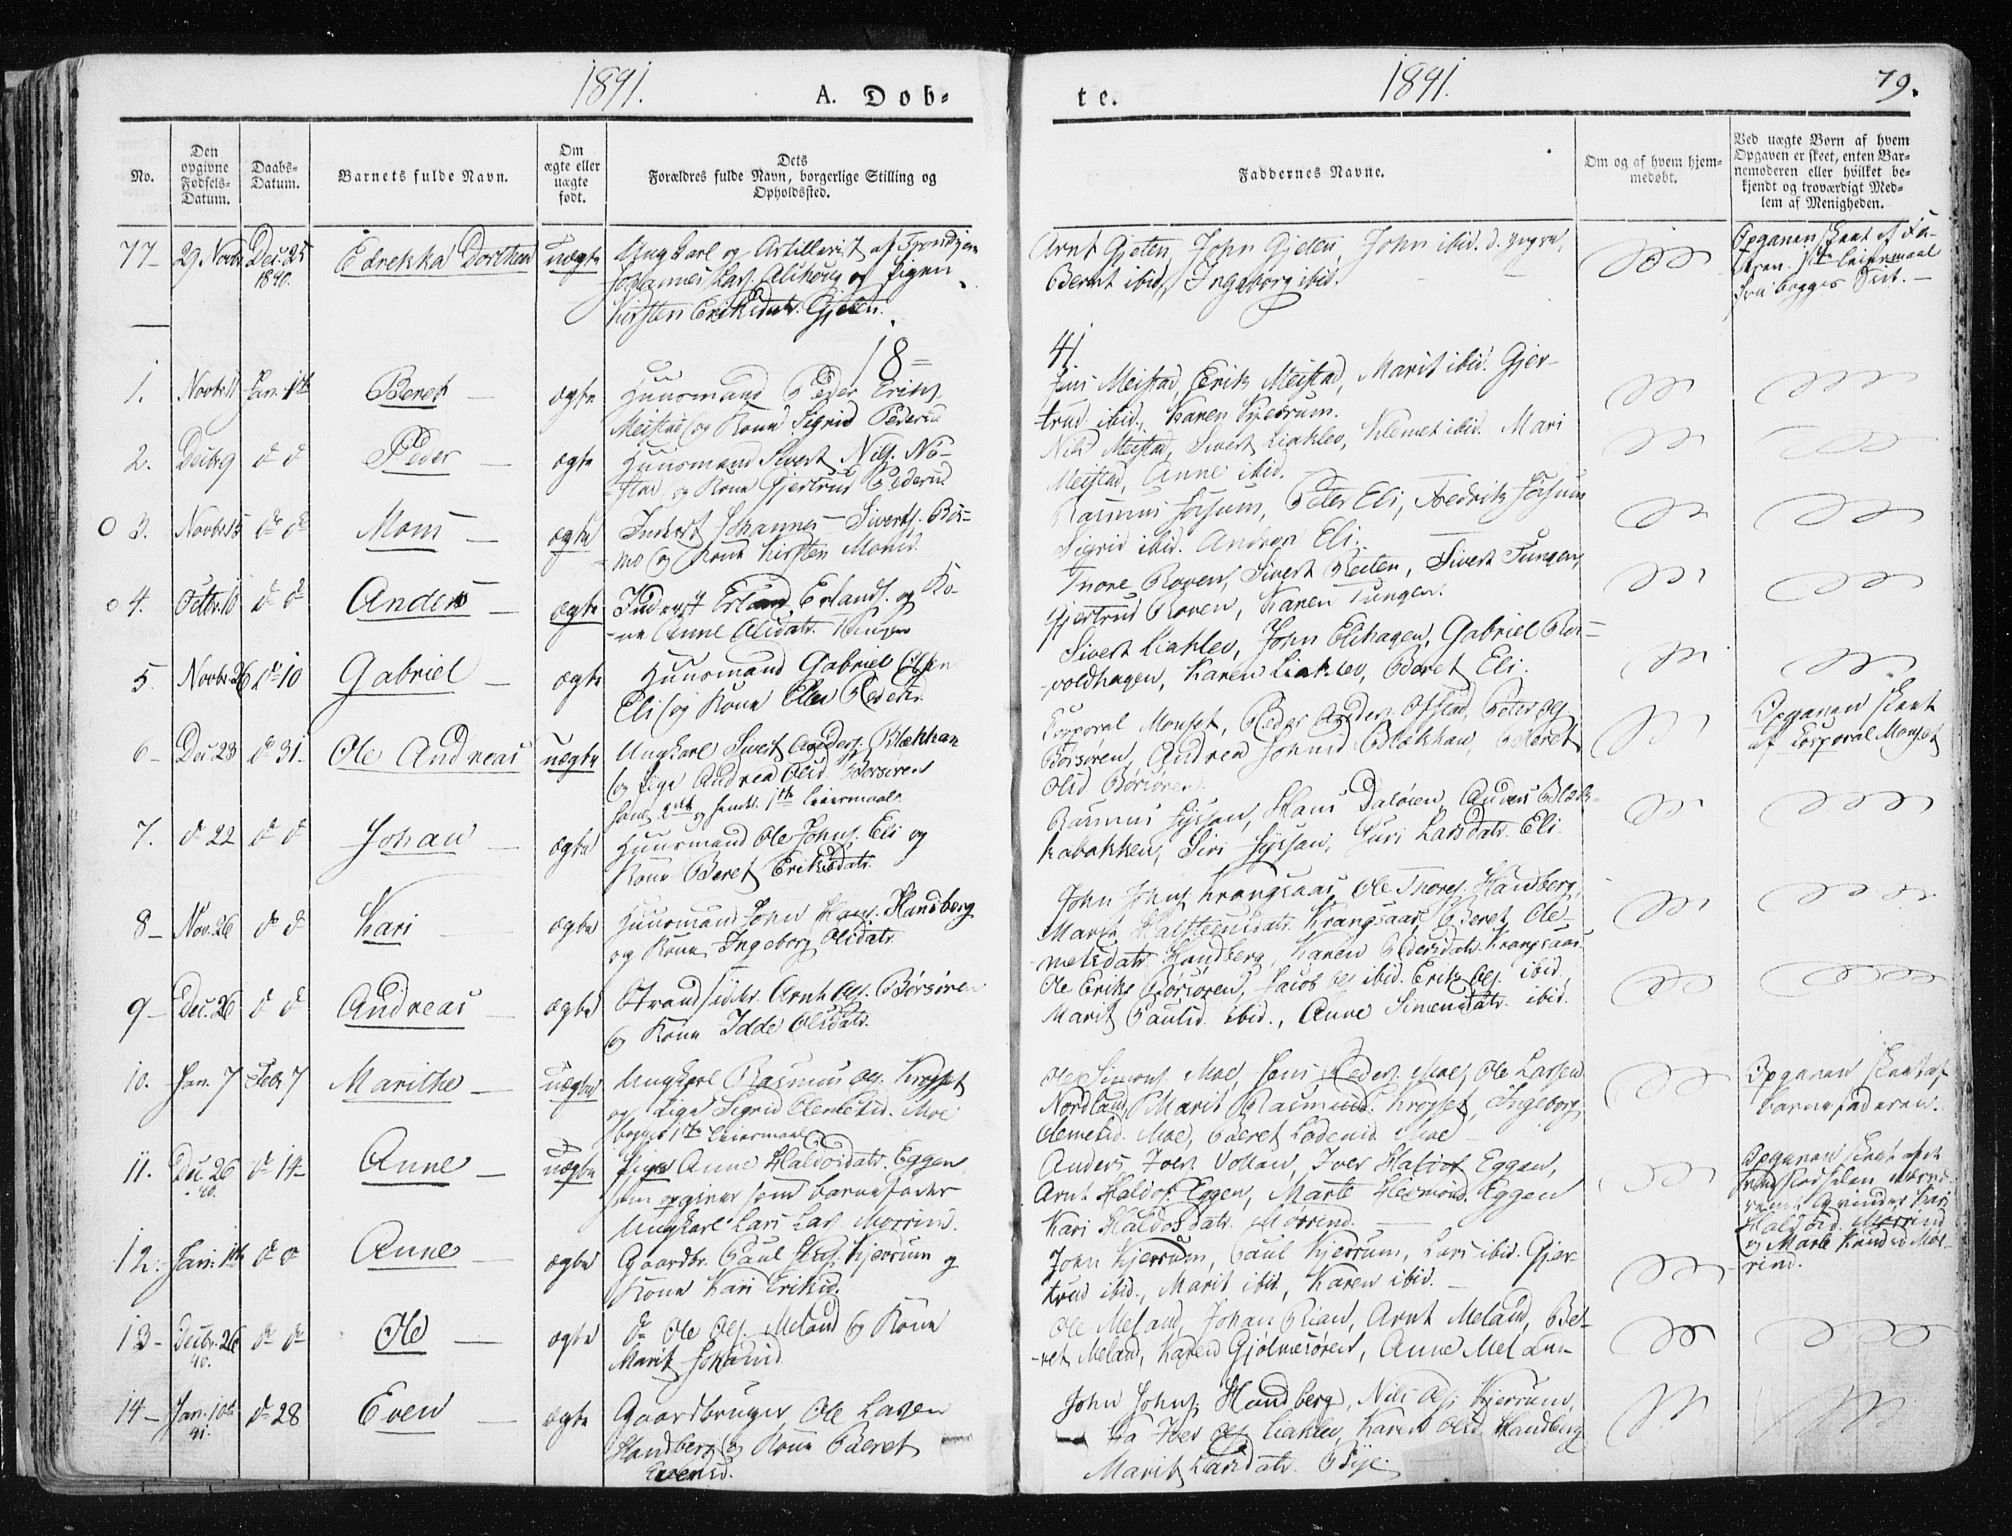 1841.
A. Döb-
te.
1841.
79.
No.
Den opgivne Födsels-Datum.
Daabs-Datum.
Barnets fulde Navn.
Om ægte eller uægte født.
Dets Forældres fulde Navn, borgerlige Stilling og Opholdssted.
Faddernes Navne.
Om og af hvem hjemmedøbt.
Ved uægte Børn af hvem Opgaven er skeet, enten Barnemoderen eller hvilket bekjendt og troværdigt Medlem af Menigheden.
77 29 Novbr Dec. 25 1840. Edrekka Dorthea uægte Ungkarl og Artillerist af Trondhjem
Johannes Lars. og Pigen
Kirsten Eriksdatr. Gjeten.
Arnt Gjeten, John Gjeten, John ibid.
Berit ibid, Ingeborg ibid.
Opgaven skeet af Faderen. 1ste Leiermaal
fra begges Side.
18=
41
1. Novbr 11 Jan. 1ste Beret ægte Huusmand Peder Eriks.
Meistad og Kone Sigrid Pedersd
Jens Meistad, Erik Meistad, Marit ibid. Gjer-
trud ibid., Karen Kjerrum.
2. Decbr 9 d d Peder ægte Huusmand Sivert Nils.
og Kone Gjertrud Pedersd
Nils Meistad, Sivert Liaklev, Klemet ibid. Mari
Meistad, Anne ibid.
3. Novbr 15 do do Mons ægte Inderst Johannes Siverts.
og Kone Kirsten Monsd.
Rasmus Forsum, Peter Eli, Fredrik Forsum
Sigrid ibid. Andrea Eli.
4. Octbr. 10 d d Anders ægte Inderst Erland Erlands. og Ko-
ne Anne Olsdatr.
Thore Roven, Sivert Reiten, Sivert Tungen,
Gjertrud Roven, Karen Tungen.
5. Novbr 26 do 10 Gabriel ægte Huusmand Gabriel Olsen
Eli og Kone Elen
Sivert Liaklev, John Elihagen, Gabriel Ros-
voldhagen, Karen Liaklev, Beret Eli.
6 Dec 23 do 31. Ole Andreas uægte Ungkarl Sivert Anders. Blækkan
og Pige Andrea Olsd. Børsøren
hans 2det og hendes 1ste Leiermaal.
Korporal Monset, Peder Anders. Ofstad, Peter Ols.
Børsøren, Andrea Johnsd Blækkan, Beret
Olsd Børsøren.
Opgaven skeet
af Korporal Monset
7. d 22 d d Johan ægte Huusmand Ole Johns. Eli og
Kone Beret Eriksdatr.
Rasmus Syrsan, Hans Daløien, Anders
Siri Syrsan, Guri Larsdatr. Eli.
8 Nov. 26 do d Kari ægte Huusmand John Hans. Handberg
og Kone Ingeborg Olsdatr.
John Johns. Krangsaas, Ole Thores. Handberg,
Marit Halsteensdatr. Krangsaas, Beret Ole-
Handberg, Karen Pedersdatr. Krangsaas.
9 Dec. 26 d d Andreas ægte Strandsidder Arnt Ols. Børsøren
og Kone Idde Olsdatr.
Ole Eriks. Børsøren, Jacob Ols ibid. Erik Ols. ibid,
Marit Paulsd. ibid., Anne Simensdatr. ibid.
10. Jan. 7 Febr 7 Marithe uægte Ungkarl Rasmus Ols. Krogset
og Pige Sigrid Clemetsd. Moe
begges 1ste Leiermaal
Ole Simons. Moe, Jens Peders. Moe, Ole Larsen
Nordland, Marit Rasmusd. Krogset, Ingeborg
Clemetsd. Moe, Beret Lodensd. Moe
Opgaven skeet af
Barnefaderen.
11. Dec 26 40. do 14 Anne uægte Pige Anne Haldorsdatr. Eggen
som opgiver som Barnefader
Ungkarl Lars Lars. Morrind.
Anders Ivers. Vollan, Iver Haldors Eggen,
Arnt Haldors. Eggen, Marte Eggen
Kari Haldorsdatr. Mørrind.
Opgaven skeet af de
ved Fødselen nærvæ-
rende Qvinder Kari
Haldorsd. Mørrind
og Marte Mør-
rind.
12. Jan. 1ste d d Anne ægte Gaardbr. Paul Kjerrum og
Kone Kari Eriksd.
John Kjerrum, Paul Kjerrum, Lars ibid. Gjer-
trud ibid., Marit ibid, Karen ibid.
13 Decbr. 26 40. do do Ole ægte do Ole Ols. Meland og Kone
Marit Johansd
Ole Meland, Johan Rian, Arnt Meland, Be-
ret Meland, Karen Gjølmesøren, Anne Melan-
14 Jan. 10de 41. do 28 Even ægte Gaardbruger Ole Larsen
Handberg og Kone Beret
Evensd.
John Johns. Handberg, Nils Ols Kjerrum,
Iver Ols. Liaklev, Karen Olsd. Handberg
Marit Larsdatr. Bye.